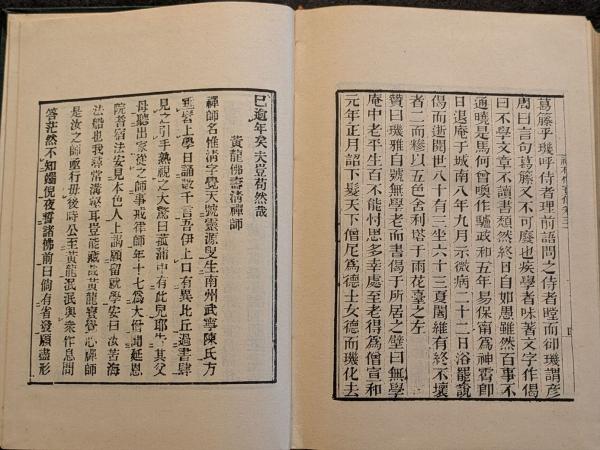 葛藤乎璣呼侍者理前語問之侍者瞠而卻璣謂彥
周曰言句葛藤又不可廢也疾學者味著文字作偈
曰不學文章不讀書頹然終日自如愚雖然百事不
通曉是馬何曾喚作驢政和五年易保甯為神霄即
日退庵于城南八年九月示微病二十二日浴罷說
偈而逝閱世八十有三坐六十三夏闍維有終不壞
者二而糝以五色舍利塔于雨花臺之左
贊曰璣雅自號無學老而書偈于所居之壁曰無學
庵中老平生百不能忖思多幸處至老得為僧宣和
元年正月詔下髮天下僧尼為德士女德而璣化去
已逾年矣夫豈苟然哉
黃龍佛壽清禪師
禪師名惟清字覺天號靈源叟生南州武寧陳氏方
垂髫上學日誦數千言吾伊上口有異比丘過書肆
見之引手熟視之大驚曰菰蒲中有此兒耶告其父
母聽出家從之師事戒律師年十七為大僧聞延恩
院耆宿法安見本色人上謁願留就學安曰汝苦海
法船也我尋常溝壑耳豈能藏汝黃龍寶覺心禪師
是汝之師亟行毋後時公至黃龍泯泯與眾作息問
答茫然不知端倪夜誓諸佛前曰倘有省發願盡形